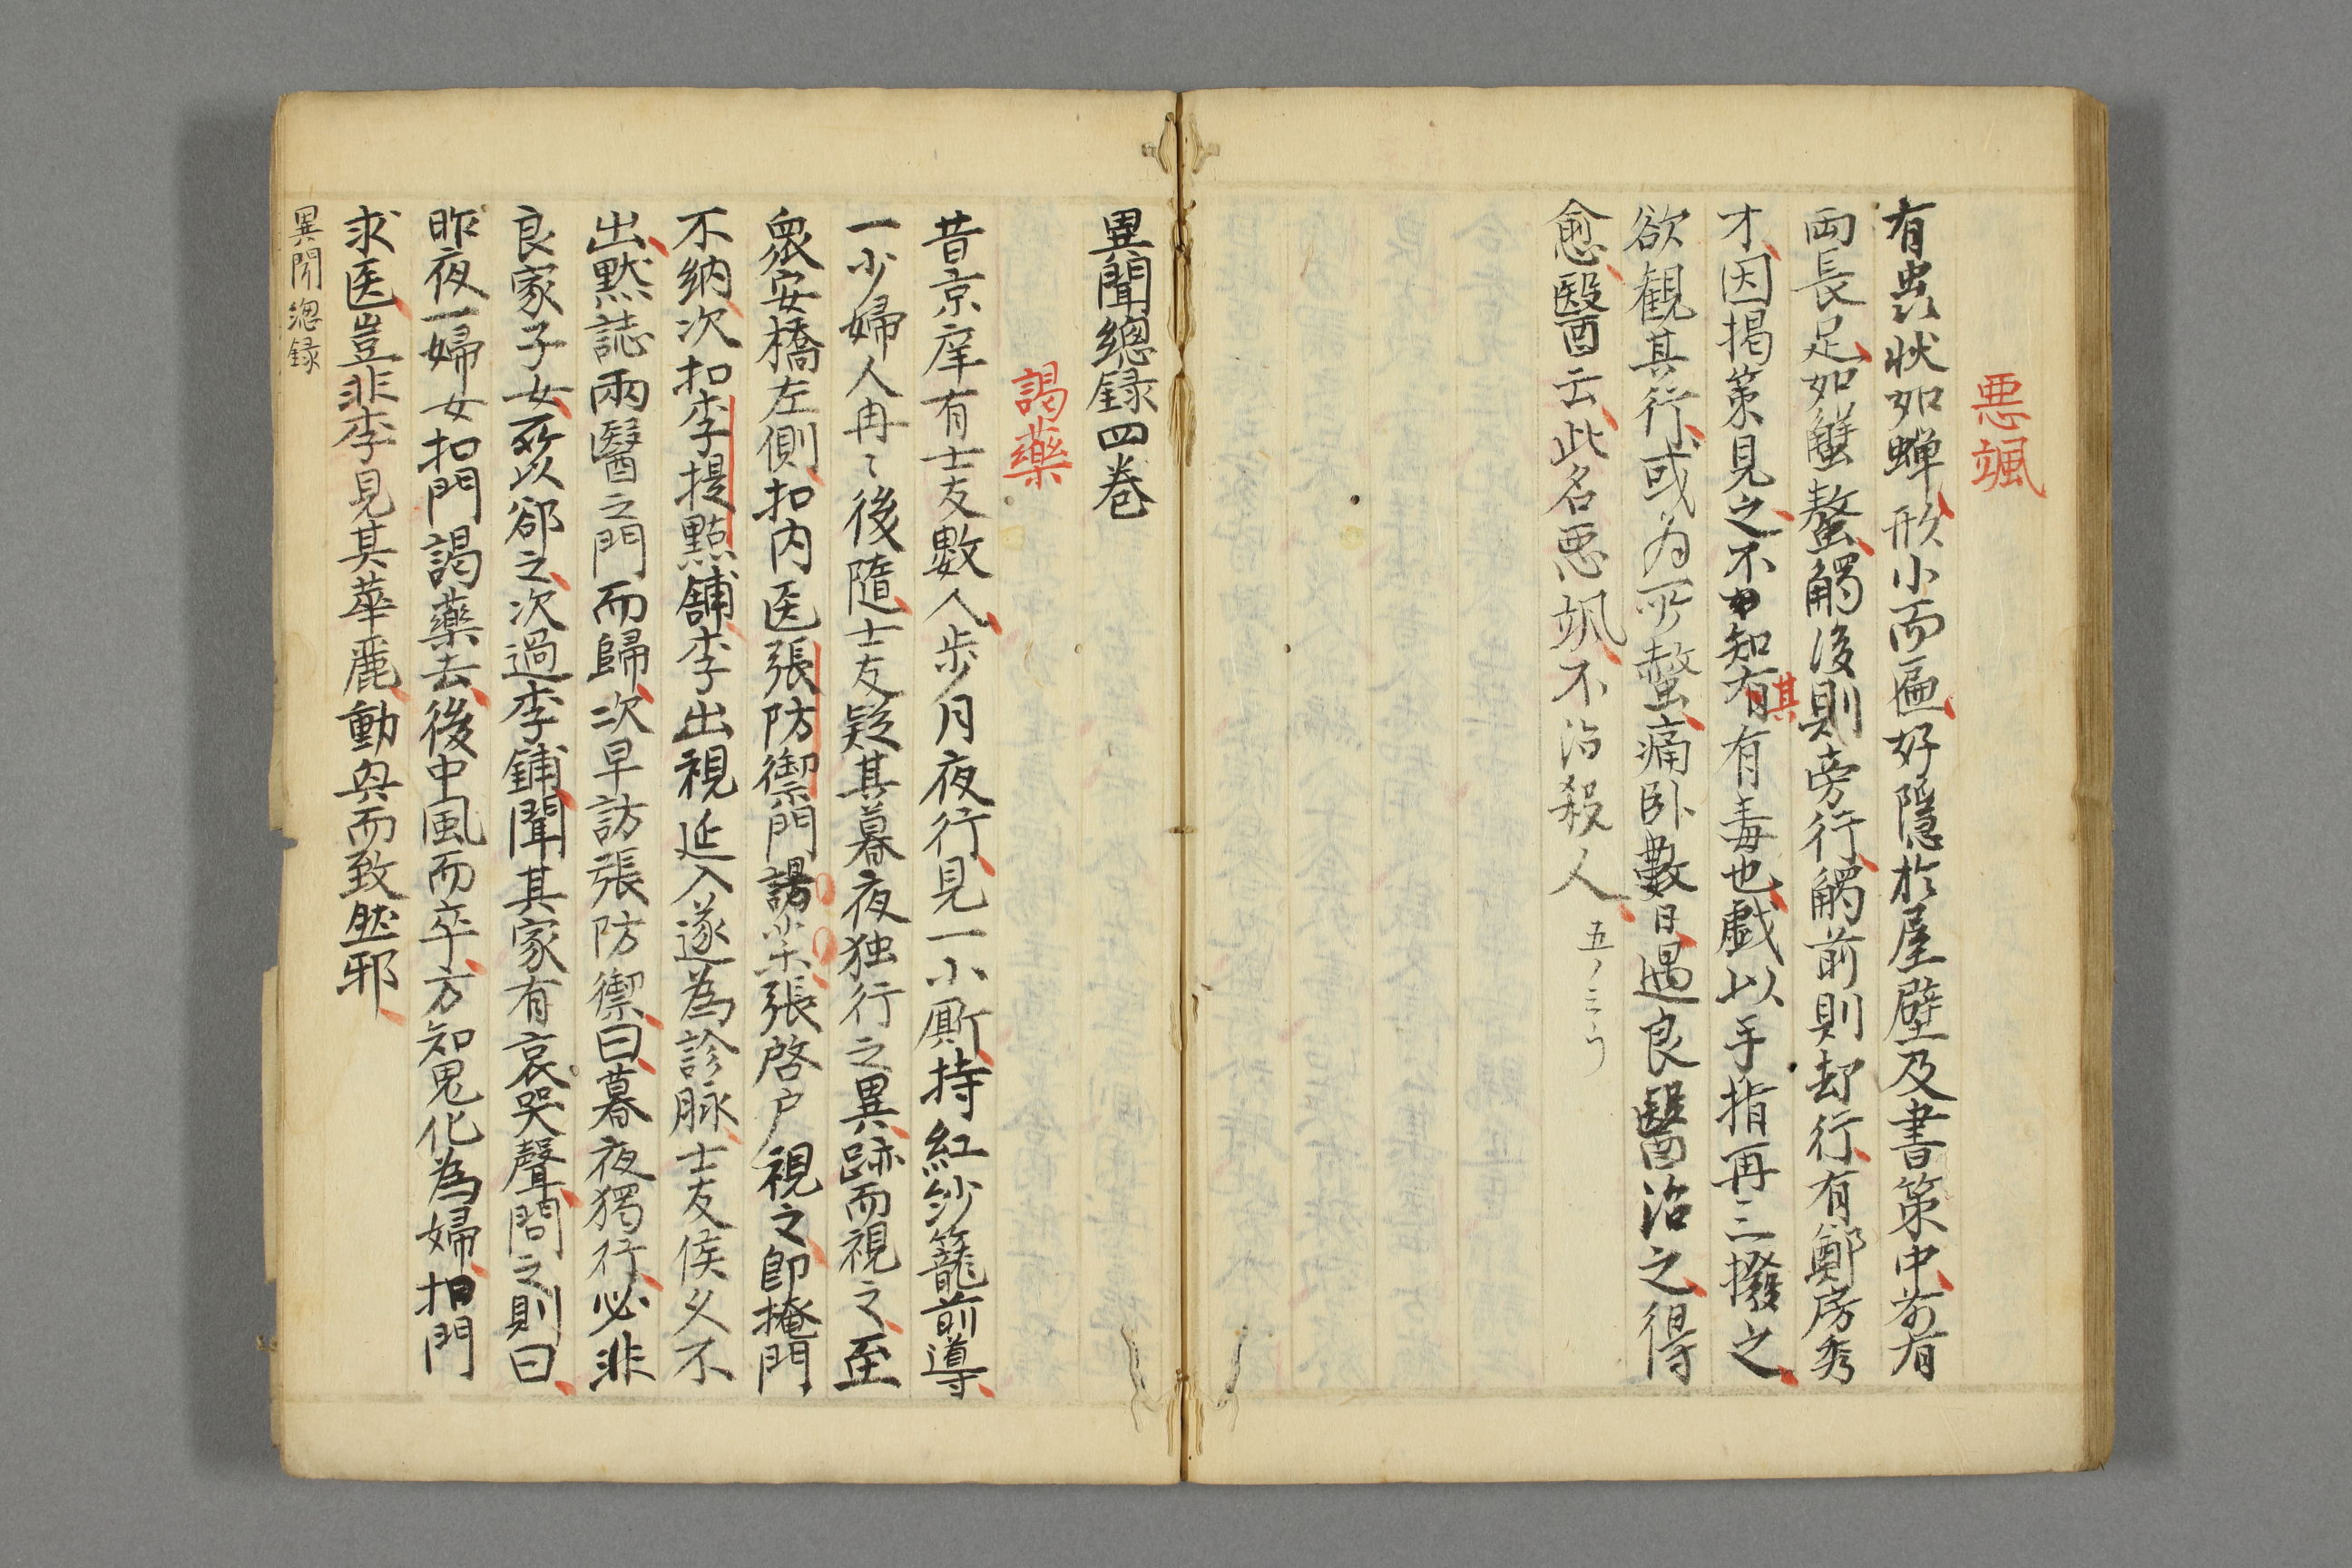 悪颯
有虫状如蝉形小而匾好隱於屋壁及書策中前有
両長足如蟹螯觸後則旁行觸前則却行有鄭房秀
才因掲策見之不知有其有毒也戯以手指再三撥之
欲観其行或为所螫痛卧數日遇良醫治之得
愈醫云此名悪颯不治殺人 五ノ三ウ
異聞總録四巻
謁藥
昔京庠有士友數人歩月夜行見一小厮持紅紗籠前導
一少婦人冉〻後隨士友疑其暮夜独行之異跡而視之至
衆安橋左側扣内医張防禦門謁楽張啓户視之即掩門
不納次扣李提點舗李出視延入遂為診脉士友侯久不
出黙誌兩醫之門而歸次早訪張防禦曰暮夜獨行必非
良家子女所以郤之次過李鋪聞其家有哀哭聲問之則曰
昨夜一婦女扣門謁藥去後中風而卒方知鬼化為婦扣門
求医豈非李見其華麗動與而致然邪
異聞総録